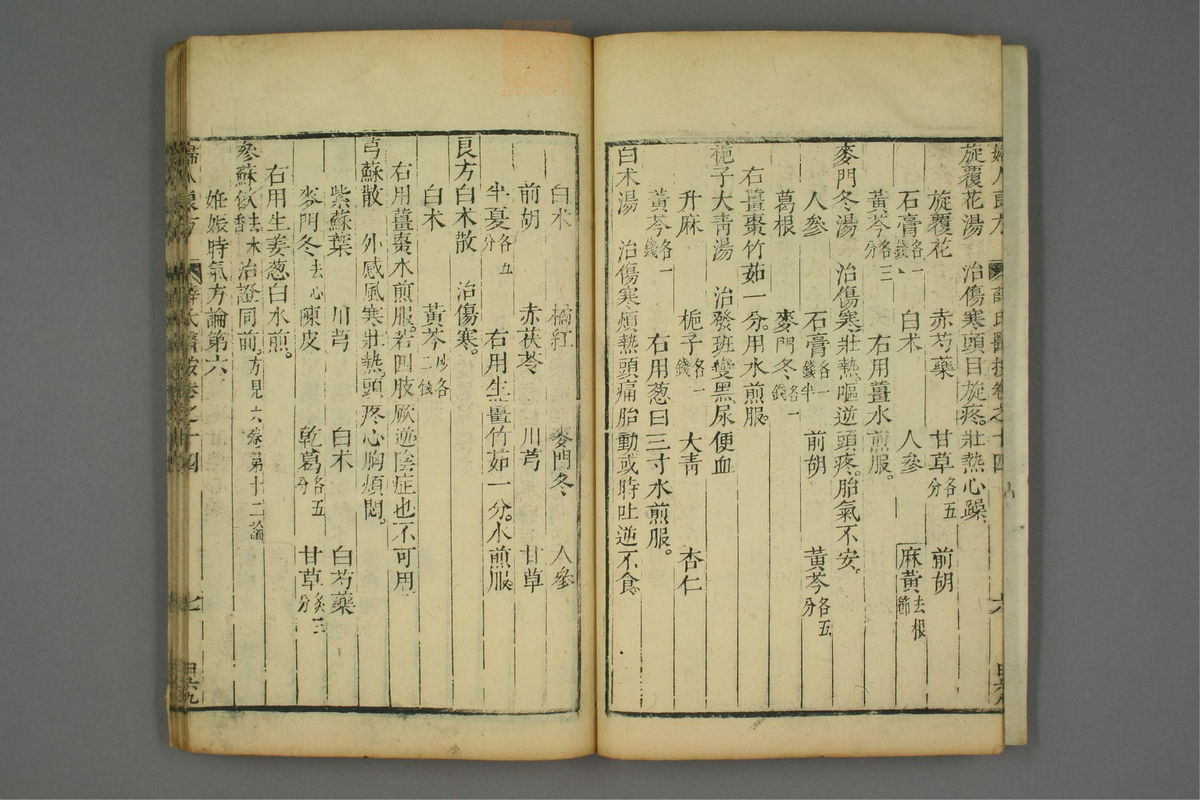 旋覆花湯　治傷寒頭目旋疼壯熱心躁
旋覆花　赤芍藥　甘草各五分　前胡
石膏各一錢　白术　人參　麻黃去根節
黃芩各三分　右用薑水煎服。
麥門冬湯　治傷寒壯熱嘔逆頭疼胎氣不安。
人參　石膏各一錢半　前胡　黃芩各五分
葛根　麥門冬各一錢
右薑棗竹茹一分。用水煎服。
梔子大青湯　治發班變黑尿便血
升麻　梔子各一錢　大青　杏仁
黃芩各一錢　右用葱白三寸水煎服。
白术湯　治傷寒煩熱頭痛胎動或時吐逆不食。
白术　橘紅　麥門冬　人參
前胡　赤茯苓　川芎　甘草
半夏各五分　右用生薑竹茹一分。水煎服。
良方白术散　治傷寒。
白术　黃芩炒各二錢
右用薑棗水煎服。若四肢厥逆陰症也不可用
芎蘇散　外感風寒壯熱。頭疼心胸煩悶。
紫蘇葉　川芎　白术　白芍藥
麥門冬去心　陳皮　乾葛各五分　甘草炙三分
右用生姜葱白水煎。
參蘇飲去木香　治證同前。方見六卷第十二論
妊娠時氣方論第六
婦人良方　薛氏醫按卷之十四　七